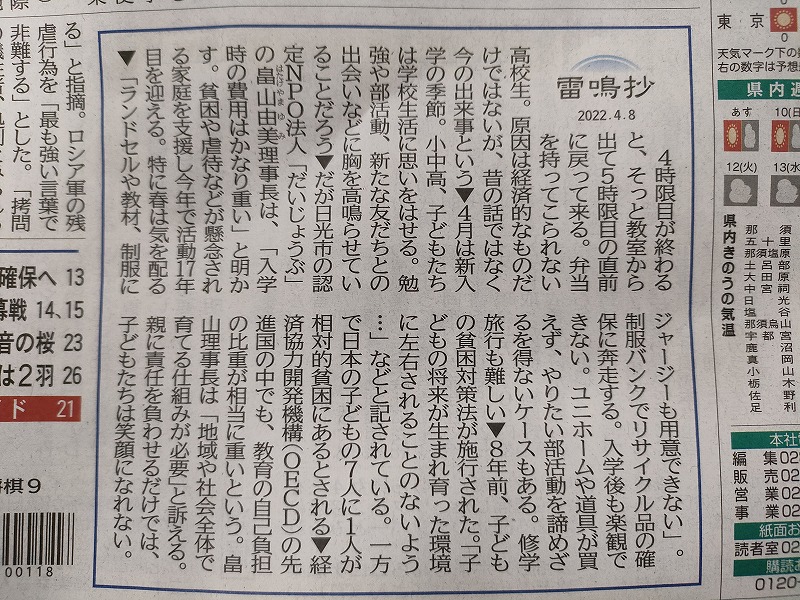 雷鳴抄
2022.4.8
4時限目が終わる
と、そっと教室から
出て5時限目の直前
に戻って来る。弁当
を持ってこられない
高校生。原因は経済的なものだ
けではないが、昔の話ではなく
今の出来事という▼4月は新入
学の季節。小中高、子どもたち
は学校生活に思いをはせる。勉
強や部活動、新たな友だちとの
出会いなどに胸を高鳴らせてい
ることだろう▼だが日光市の認
定NPO法人「だいじょうぶ」
の畠山由美理事長は、「入学
はたけやまゆみ
時の費用はかなり重い」と明か
す。貧困や虐待などが懸念され
る家庭を支援し今年で活動17年
目を迎える。特に春は気を配る
▼「ランドセルや教材、制服に
ジャージーも用意できない」。
制服バンクでリサイクル品の確
保に奔走する。入学後も楽観で
きない。ユニホームや道具が買
えず、やりたい部活動を諦めざ
るを得ないケースもある。修学
旅行も難しい▼8年前、子ども
の貧困対策法が施行された。「子
どもの将来が生まれ育った環境
に左右されることのないよう
…」などと記されている。一方
で日本の子どもの7人に1人が
相対的貧困にあるとされる▼経
済協力開発機構(OECD)の先
進国の中でも、教育の自己負担
の比重が相当に重いという。畠
山理事長は「地域や社会全体で
育てる仕組みが必要」と訴える。
親に責任を負わせるだけでは、
子どもたちは笑顔になれない。
東京
0
0
天気マーク下の数
右の数字は予想
県内週
あす
10(日
12(火)
13(水
県内きのうの気温
る」と指摘。ロシア軍の残
虐行為を「最も強い言葉で
非難する」とした。「拷問
確保へ 13
幕戦 14、15
音の桜 23
は2羽 26
イド 21
将棋 9
00118
本社
編 集 02
販 売 02
営 業 02
事 業 02
紙面お
読者室 02
購読お
0120-